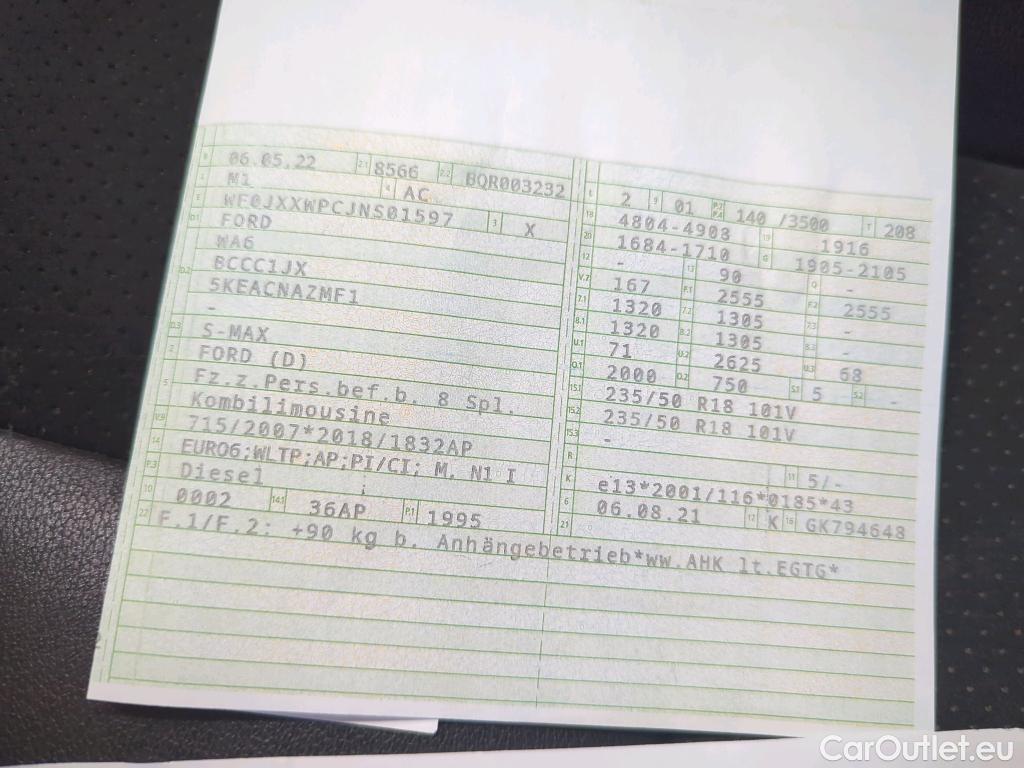 B 06.05.22 2.1 8566 2.2 BQR003232
J M1 4 AC
E WF0JXXWPCJNS01597 3 X
D.1 FORD
WA6
D.2 BCCC1JX
5KEACNAZMF1
-
D.3 S-MAX
2 FORD (D)
5 Fz.z.Pers.bef.b. 8 Spl.
Kombilimousine
V.9 715/2007*2018/1832AP
14 EURO6;WLTP;AP;PI/CI; M, N1 I
P.3 Diesel
10 0002 14.1 36AP P.1 1995
22 F.1/F.2: +90 kg b. Anhängebetrieb*ww.AHK lt.EGTG*
L 2 9 01 P.2 P.4 140 /3500 T 208
18 4804-4903 19 1916
20 1684-1710 G 1905-2105
12 - 13 90 Q -
V.7 167 F.1 2555 F.2 2555
7.1 1320 7.2 1305 7.3 -
8.1 1320 8.2 1305 8.3 -
U.1 71 U.2 2625 U.3 68
O.1 2000 O.2 750 S.1 5 S.2 -
15.1 235/50 R18 101V
15.2 235/50 R18 101V
15.3 -
R 11 5/-
K e13*2001/116*0185*43
6 06.08.21 17 K 16 GK794648
21
CarOutlet.eu